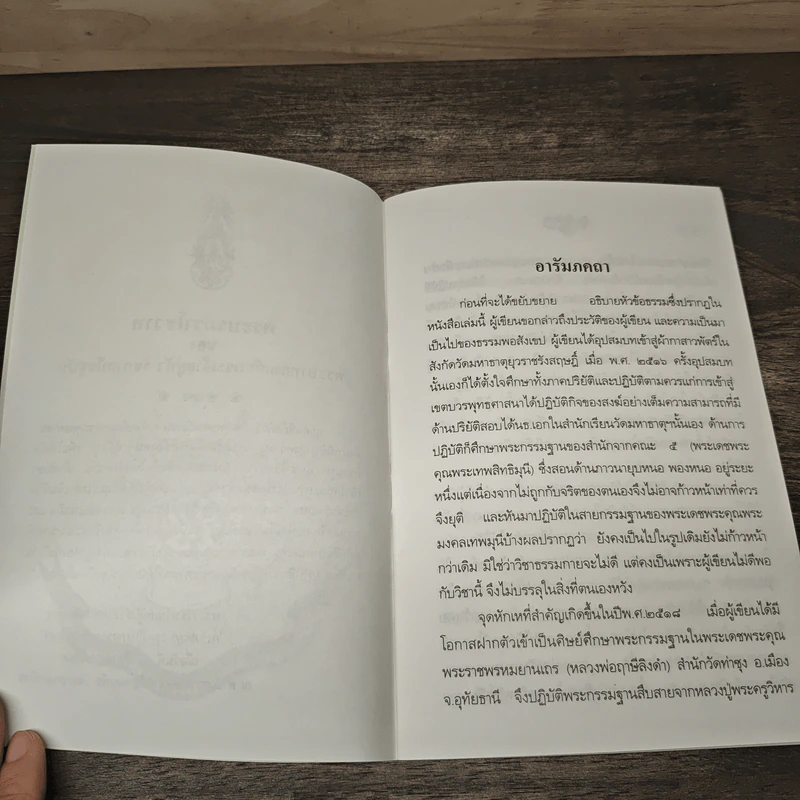 อารัมภคถา
ก่อนที่จะได้ขยับขยาย อธิบายหัวข้อธรรมซึ่งปรากฏใน
หนังสือเล่มนี้ ผู้เขียนขอกล่าวถึงประวัติของผู้เขียน และความเป็นมา
เป็นไปของธรรมพอสังเขป ผู้เขียนได้อุปสมบทเข้าสู่ผ้ากาสาวพัตร์ใน
สังกัดวัดมหาธาตุยุวราชรังสฤษฎิ์ เมื่อ พ.ศ. ๒๕๑๖ ครั้งอุปสมบท
นั้นเองก็ได้ตั้งใจศึกษาทั้งภาคปริยัติและปฏิบัติตามควรแก่การเข้าสู่
เขตบวรพุทธศาสนาได้ปฏิบัติกิจของสงฆ์อย่างเต็มความสามารถที่มี
ด้านปริยัติสอบได้นธ.เอกในสำนักเรียนวัดมหาธาตุฯนั้นเอง ด้านการ
ปฏิบัติก็ศึกษาพระกรรมฐานของสำนักจากคณะ ๕ (พระเดชพระ
คุณพระเทพสิทธิมุนี) ซึ่งสอนด้านภาวนายุบหนอ พองหนอ อยู่ระยะ
หนึ่งแต่เนื่องจากไม่ถูกกับจริตของตนเองจึงไม่อาจก้าวหน้าเท่าที่ควร
จึงยุติ และหันมาปฏิบัติในสายกรรมฐานของพระเดชพระคุณพระ
มงคลเทพมุนีบ้างผลปรากฏว่า ยังคงเป็นไปในรูปเดิมยังไม่ก้าวหน้า
กว่าเดิม มิใช่ว่าวิชาธรรมกายจะไม่ดี แต่คงเป็นเพราะผู้เขียนไม่ดีพอ
กับวิชานี้ จึงไม่บรรลุในสิ่งที่ตนเองหวัง
จุดหักเหที่สำคัญเกิดขึ้นในปีพ.ศ.๒๕๑๘ เมื่อผู้เขียนได้มี
โอกาสฝากตัวเข้าเป็นศิษย์ศึกษาพระกรรมฐานในพระเดชพระคุณ
พระราชพรหมยานเถร (หลวงพ่อฤาษีลิงดำ) สำนักวัดท่าซุง อ.เมือง
จ.อุทัยธานี จึงปฏิบัติพระกรรมฐานสืบสายจากหลวงปู่พระครูวิหาร